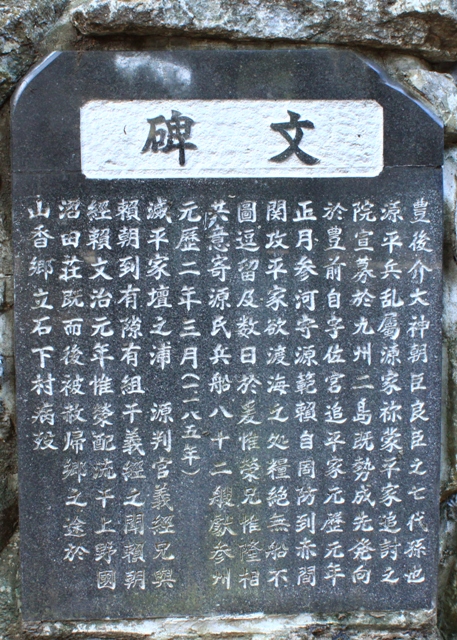 碑文
豊後介大神朝臣良臣之七代孫也
源平兵乱属源家祢蒙平家追討之
院宣募於九州二島既勢成先発向
於豊前自字佐宮追平家元歴元年
正月参河守源範頼自周防到赤間
関攻平家欲渡海之処糧絶無船不
圖逗留及数日於爰惟榮兄惟隆相
共意寄源氏兵船八十二艘獻参州
元歴二年三月(一一八五年)
滅平家壇之浦 源判官義經兄與
頼朝到有隙有組于義經之聞頼朝
經頼文治元年惟榮配流于上野國
沼田荘既而後被赦帰郷之途於
山香郷立石下村病歿